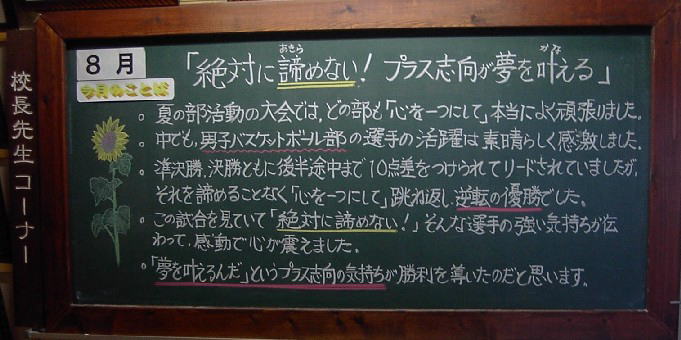 校長先生コーナー
8月
今月のことば
「絶対に諦めない！ プラス志向が夢を叶える」
あきら
かな
。夏の部活動の大会では、どの部も「心を一つにして」本当によく頑張りました。
。中でも、男子バスケットボール部の選手の活躍は素晴らしく感激しました。
。準決勝、決勝ともに後半途中まで10点差をつけられてリードされていましたが、
それを諦めることなく「心を一つにして」跳ね返し、逆転の優勝でした。
。この試合を見ていて「絶対に諦めない！」そんな選手の強い気持ちが伝
わって、感動で心が震えました。
。「夢を叶えるんだ」というプラス志向の気持ちが勝利を導いたのだと思います。